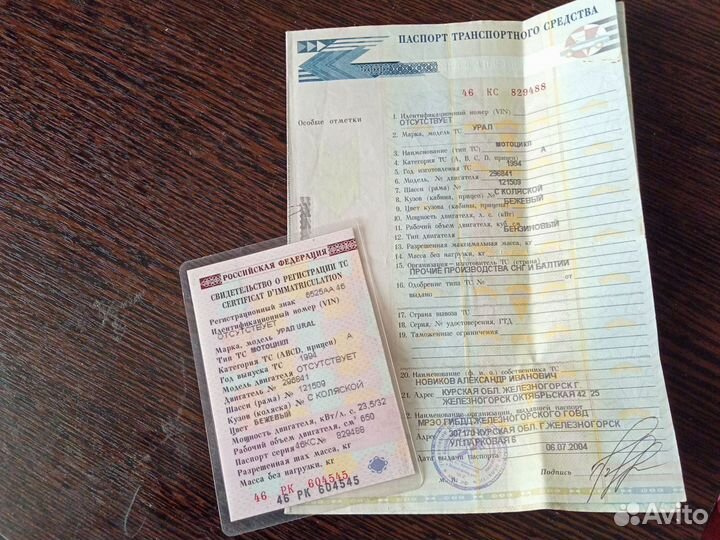 ПАСПОРТ ТРАНСПОРТНОГО СРЕДСТВА
46 КС 829488
Особые отметки
1. Идентификационный номер (VIN)
ОТСУТСТВУЕТ
2. Марка, модель ТС УРАЛ
3. Наименование (тип ТС) МОТОЦИКЛ
4. Категория ТС (А, В, С, D, прицеп) А
5. Год изготовления ТС 1994
6. Модель, № двигателя 296841
7. Шасси (рама) № 121509
8. Кузов (кабина, прицеп) № С КОЛЯСКОЙ
9. Цвет кузова (кабины, прицепа) БЕЖЕВЫЙ
10. Мощность двигателя, л. с. (кВт)
11. Рабочий объем двигателя, куб. см
12. Тип двигателя БЕНЗИНОВЫЙ
13. Разрешенная максимальная масса, кг
14. Масса без нагрузки, кг
15. Организация-изготовитель ТС (страна)
ПРОЧИЕ ПРОИЗВОДСТВА СНГ И БАЛТИИ
16. Одобрение типа ТС № от
выдано
17. Страна вывоза ТС
18. Серия, № ГТД
19. Таможенные ограничения
20. Наименование (ф. и. о.) собственника ТС
НОВИКОВ АЛЕКСАНДР ИВАНОВИЧ
21. Адрес КУРСКАЯ ОБЛ. ЖЕЛЕЗНОГОРСК Г
ЖЕЛЕЗНОГОРСК ОКТЯБРЬСКАЯ 42 25
22. Наименование организации, выдавшей паспорт
МРЭО ГИБДД ЖЕЛЕЗНОГОРСКОГО ОВД
Адрес 307170 КУРСКАЯ ОБЛ. Г.ЖЕЛЕЗНОГОРСК
УЛ.ПАРКОВАЯ 6
Дата выдачи паспорта 06.07.2004
М. П. Подпись
РОССИЙСКАЯ ФЕДЕРАЦИЯ
СВИДЕТЕЛЬСТВО О РЕГИСТРАЦИИ ТС
CERTIFICAT D'IMMATRICULATION
Регистрационный знак 6525АА 46
Идентификационный номер (VIN)
ОТСУТСТВУЕТ
Марка, модель УРАЛ URAL
Тип ТС МОТОЦИКЛ
Категория ТС (ABCD, прицеп) А
Год выпуска ТС 1994
Модель двигателя ОТСУТСТВУЕТ
Двигатель № 296841
Шасси (рама) № 121509
Кузов (коляска) № С КОЛЯСКОЙ
Цвет БЕЖЕВЫЙ
Мощность двигателя, кВт/л. с. 23,5/32
Рабочий объем двигателя, см³ 650
Паспорт серия 46КС № 829488
Разрешенная max масса, кг
Масса без нагрузки, кг
46 РК 604545
46 РК 604545
Avito